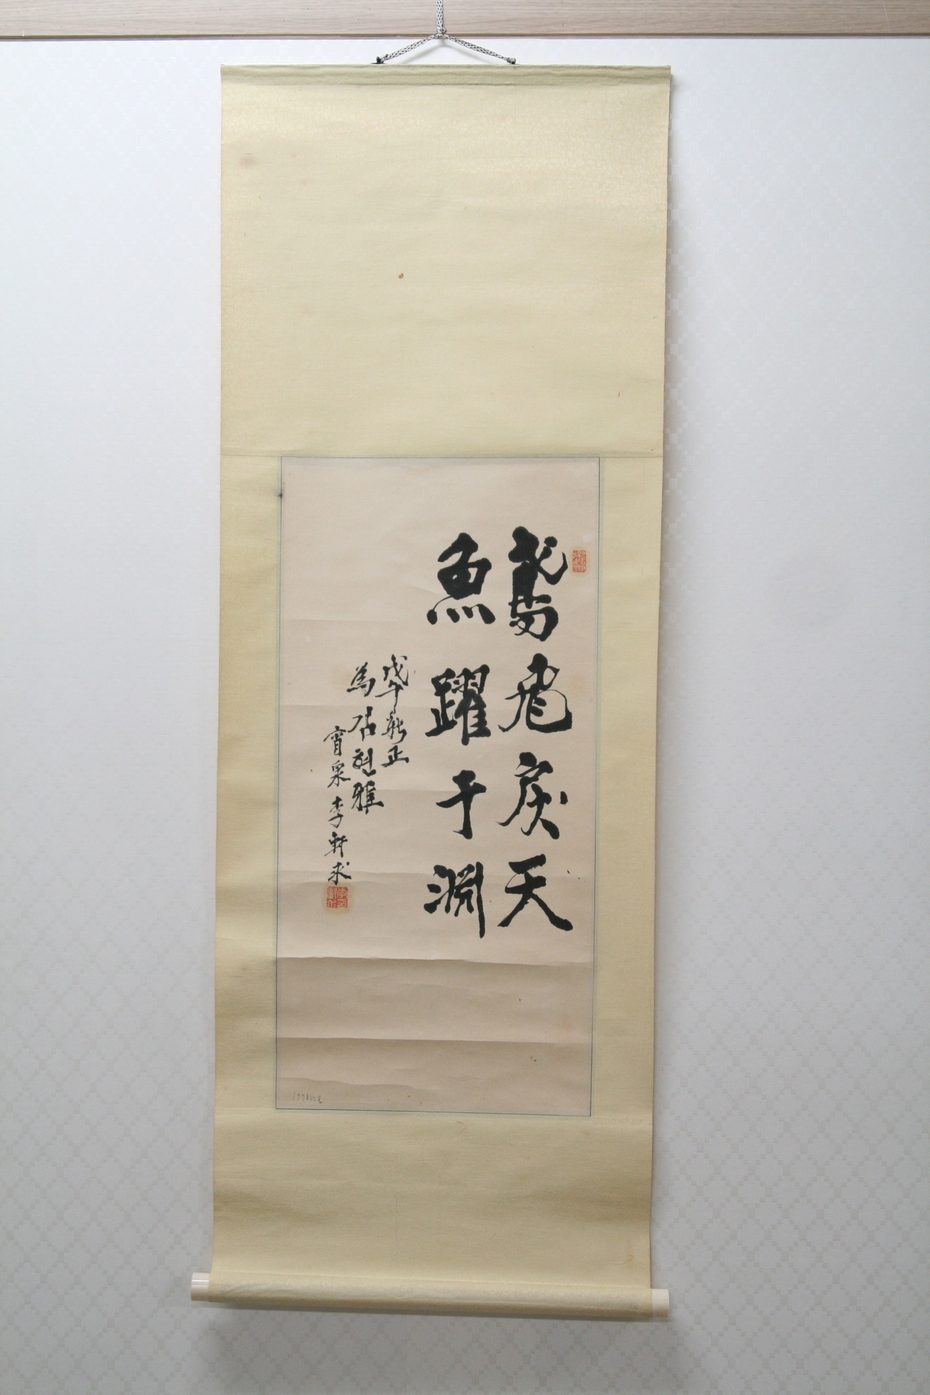 鳶飛戾天
魚躍于淵
戊午新正
為 雅
宵泉 李軒求